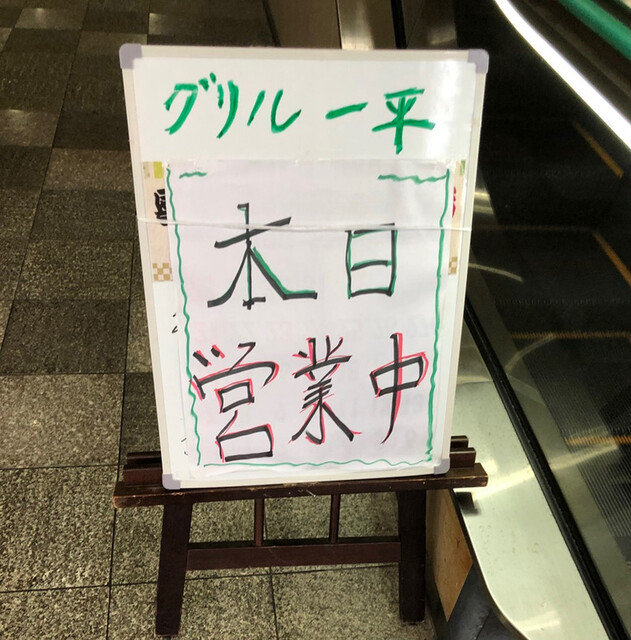 グリル一平
本日
営業中